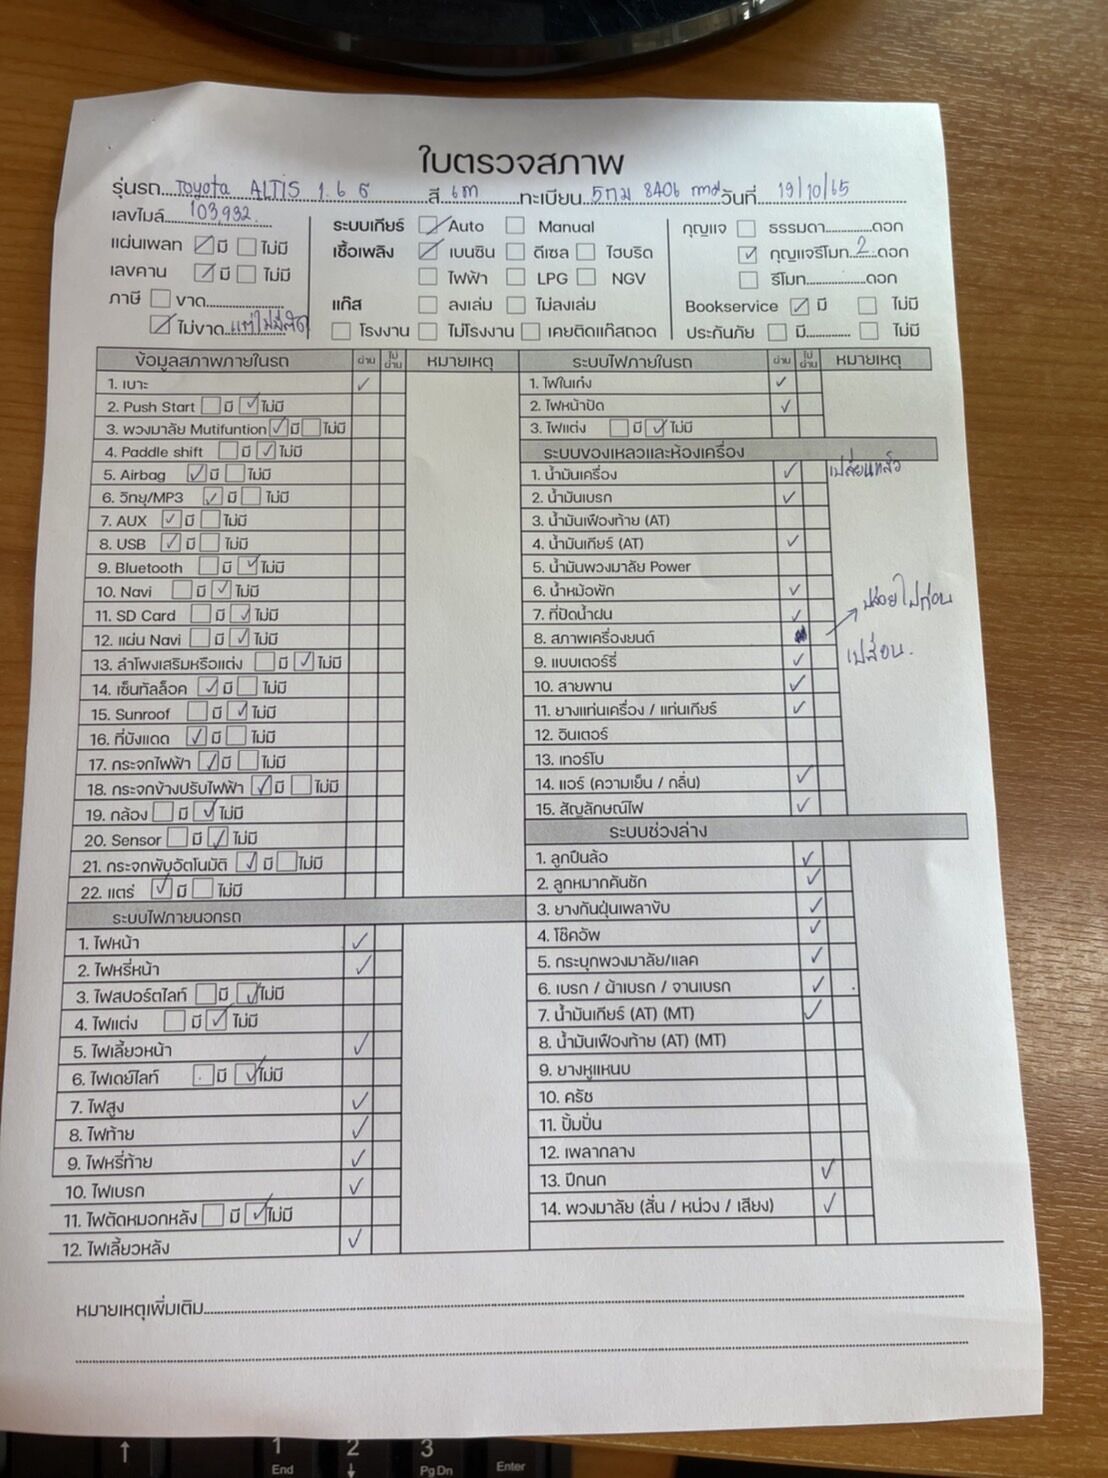 ใบตรวจสภาพ
รุ่นรถ Toyota ALTIS 1.6 G สี เทา ทะเบียน 5กม 8406 กทม วันที่ 19/10/65
เลขไมล์ 103,932
ระบบเกียร์ Auto Manual
กุญแจ ธรรมดา ดอก
แผ่นเพลท มี ไม่มี
เชื้อเพลิง เบนซิน ดีเซล ไฮบริด
กุญแจรีโมท 2 ดอก
เลขคาน มี ไม่มี
ไฟฟ้า LPG NGV
รีโมท ดอก
ภาษี ขาด
แก๊ส ลงเล่ม ไม่ลงเล่ม
Bookservice มี ไม่มี
ไม่ขาด แต่ไม่มีติด
โรงงาน ไม่โรงงาน เคยติดแก๊สถอด
ประกันภัย มี ไม่มี
ข้อมูลสภาพภายในรถ ผ่าน ไม่ผ่าน หมายเหตุ
1. เบาะ
2. Push Start มี ไม่มี
3. พวงมาลัย Mutifuntion มี ไม่มี
4. Paddle shift มี ไม่มี
5. Airbag มี ไม่มี
6. วิทยุ/MP3 มี ไม่มี
7. AUX มี ไม่มี
8. USB มี ไม่มี
9. Bluetooth มี ไม่มี
10. Navi มี ไม่มี
11. SD Card มี ไม่มี
12. แผ่น Navi มี ไม่มี
13. ลำโพงเสริมหรือแต่ง มี ไม่มี
14. เซ็นทัลล็อค มี ไม่มี
15. Sunroof มี ไม่มี
16. ที่บังแดด มี ไม่มี
17. กระจกไฟฟ้า มี ไม่มี
18. กระจกข้างปรับไฟฟ้า มี ไม่มี
19. กล้อง มี ไม่มี
20. Sensor มี ไม่มี
21. กระจกพับอัตโนมัติ มี ไม่มี
22. แตร่ มี ไม่มี
ระบบไฟภายนอกรถ
1. ไฟหน้า
2. ไฟหรี่หน้า
3. ไฟสปอร์ตไลท์ มี ไม่มี
4. ไฟแต่ง มี ไม่มี
5. ไฟเลี้ยวหน้า
6. ไฟเดย์ไลท์ มี ไม่มี
7. ไฟสูง
8. ไฟท้าย
9. ไฟหรี่ท้าย
10. ไฟเบรก
11. ไฟตัดหมอกหลัง มี ไม่มี
12. ไฟเลี้ยวหลัง
ระบบไฟภายในรถ ผ่าน ไม่ผ่าน หมายเหตุ
1. ไฟในเก๋ง
2. ไฟหน้าปัด
3. ไฟแต่ง มี ไม่มี
ระบบของเหลวและห้องเครื่อง
1. น้ำมันเครื่อง เปลี่ยนแล้ว
2. น้ำมันเบรก
3. น้ำมันเฟืองท้าย (AT)
4. น้ำมันเกียร์ (AT)
5. น้ำมันพวงมาลัย Power
6. น้ำหม้อพัก
7. ที่ปัดน้ำฝน
8. สภาพเครื่องยนต์ ปล่อยไปก่อน
9. แบบเตอร์รี่
10. สายพาน
11. ยางแท่นเครื่อง / แท่นเกียร์
12. อินเตอร์
13. เทอร์โบ
14. แอร์ (ความเย็น / กลิ่น)
15. สัญลักษณ์ไฟ
ระบบช่วงล่าง
1. ลูกปืนล้อ
2. ลูกหมากคันชัก
3. ยางกันฝุ่นเพลาขับ
4. โช๊คอัพ
5. กระบุกพวงมาลัย/แลค
6. เบรก / ผ้าเบรก / จานเบรก
7. น้ำมันเกียร์ (AT) (MT)
8. น้ำมันเฟืองท้าย (AT) (MT)
9. ยางหูแหนบ
10. ครัช
11. ปั้มปั่น
12. เพลากลาง
13. ปีกนก
14. พวงมาลัย (สั่น / หน่วง / เสียง)
หมายเหตุเพิ่มเติม
1
End
2
3
Pg Dn
Enter